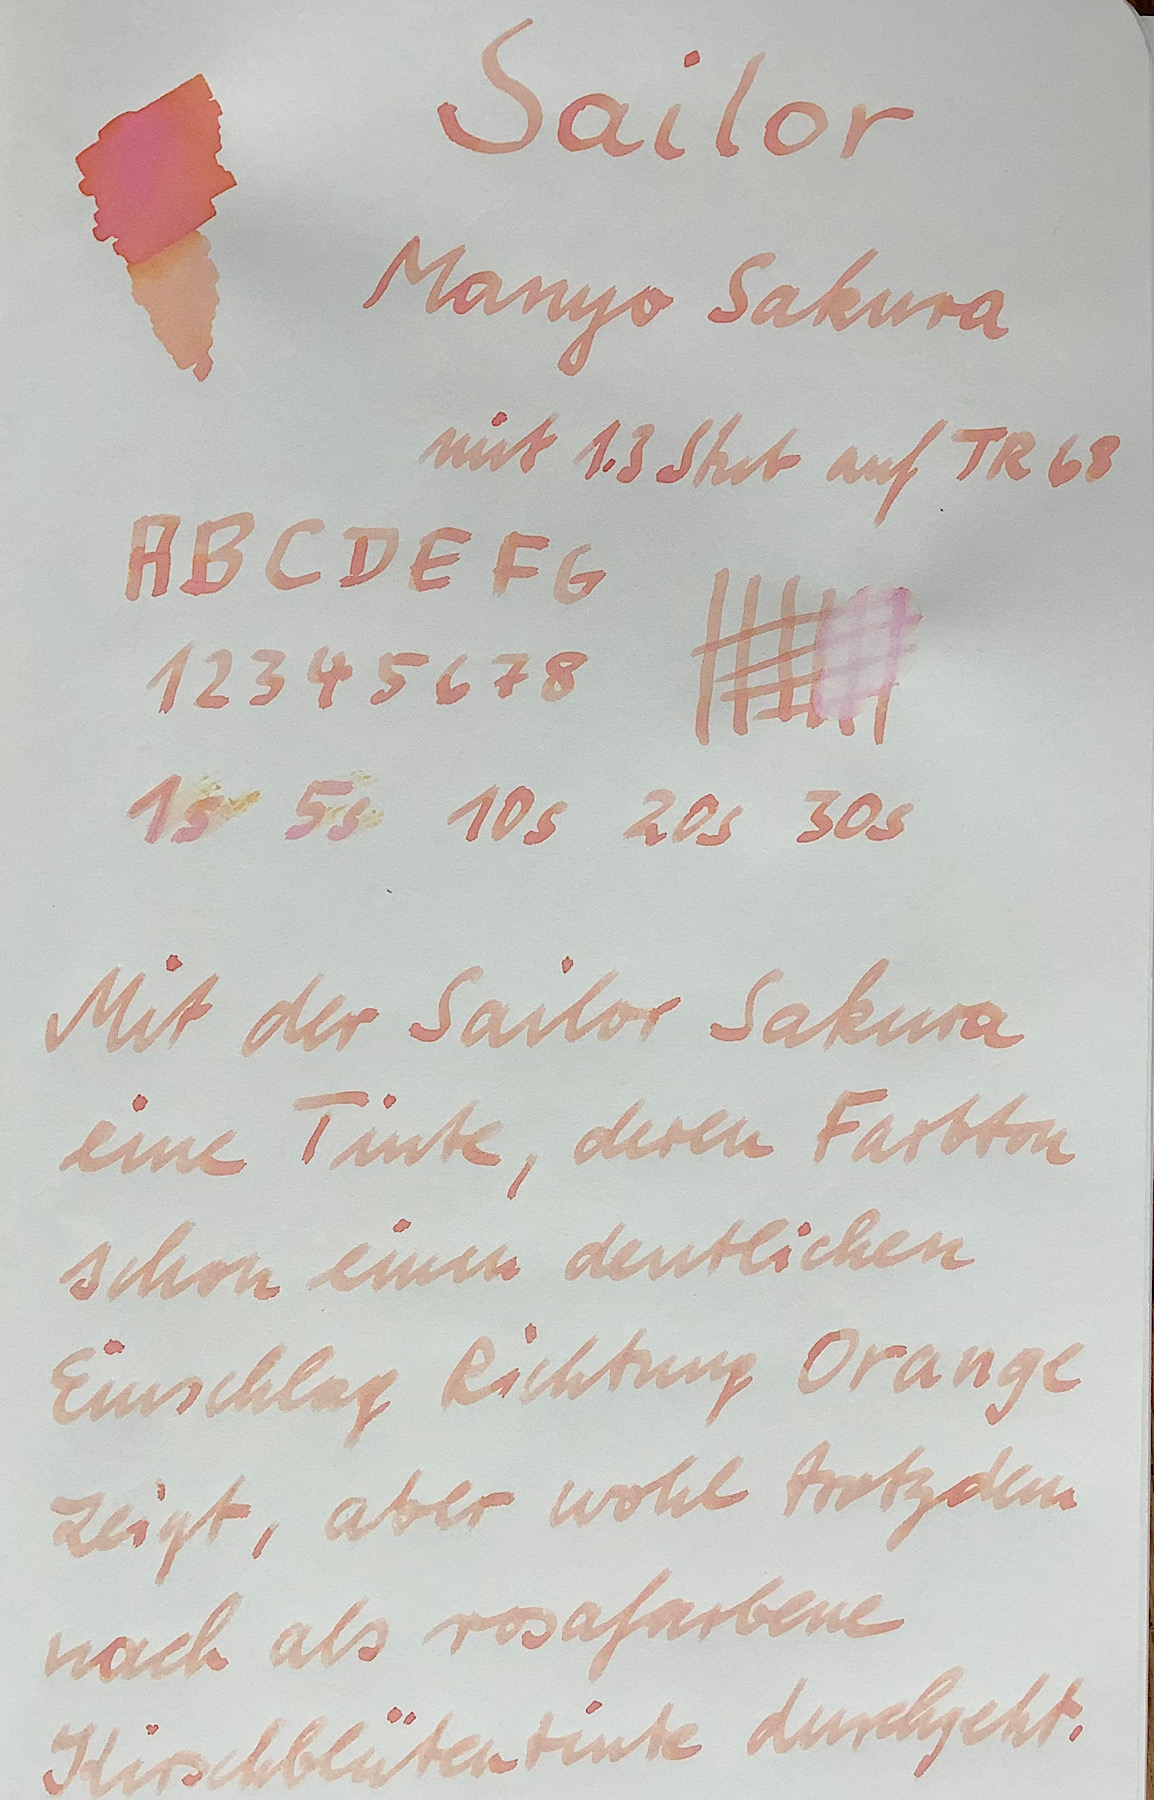 Sailor
Manyo Sakura
mit 1.3 Stub auf TR 68
A B C D E F G
1 2 3 4 5 6 7 8
1s 5s 10s 20s 30s
Mit der Sailor Sakura
eine Tinte, deren Farbton
schon einen deutlichen
Einschlag Richtung Orange
zeigt, aber wohl trotzdem
noch als rosafarbene
Kirschblütentinte durchgeht.